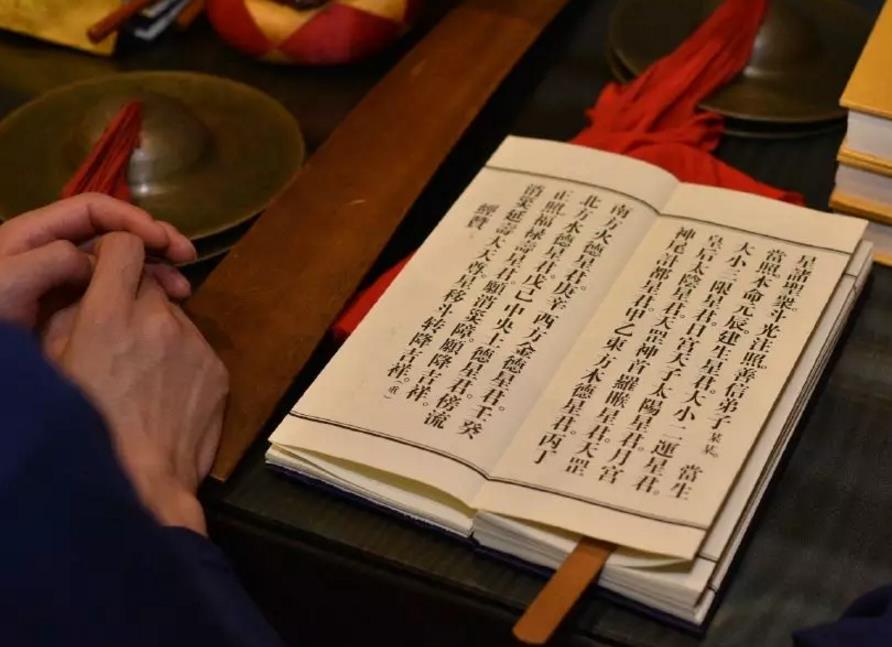 星諸聖衆。斗光注照。善信弟子某某。當生
當照本命元辰。建生星君。大小二運星君。
大小三限星君。日宮天子太陽星君。月宮
皇后太陰星君。天罡神首羅睺星君。天罡
神尾計都星君。甲乙東方木德星君。丙丁
南方火德星君。庚辛西方金德星君。壬癸
北方水德星君。戊己中央土德星君。榜流
正照。福祿壽星君。願消災障。願降吉祥。
消災延壽大天尊。星移斗轉降吉祥。(重)
經贊